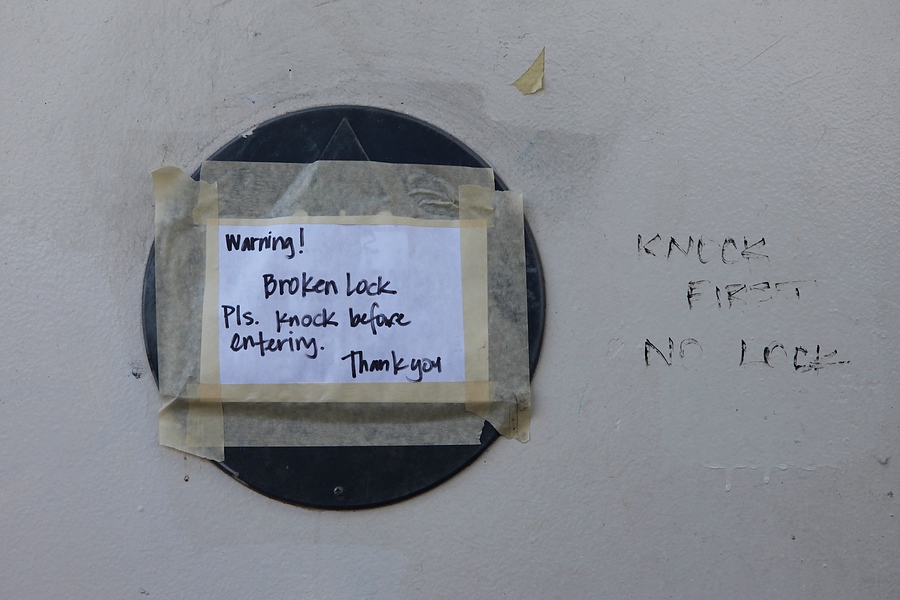 Warning!
Broken Lock
Pls. knock before
entering.
Thank you
KNOCK
FIRST
NO LOCK